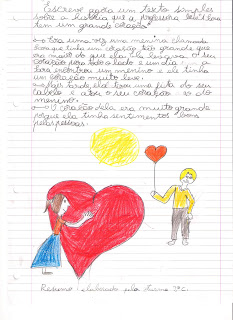 Escreve agora um texto simples
sobre a história que a professora leu "Eva
tem um grande coração"
Era uma vez uma menina chamada
Eva que tinha um coração tão grande que
era maior do que ela. Ela levava o seu
coração para todo o lado e um dia, a
Eva encontrou um menino e ele tinha
um coração muito leve.
Mais tarde, ela tirou uma fita do seu
cabelo e atou o seu coração ao do
menino.
O coração dela era muito grande
porque ela tinha sentimentos bons
pelas pessoas.
Resumo elaborado pela turma 2º C.